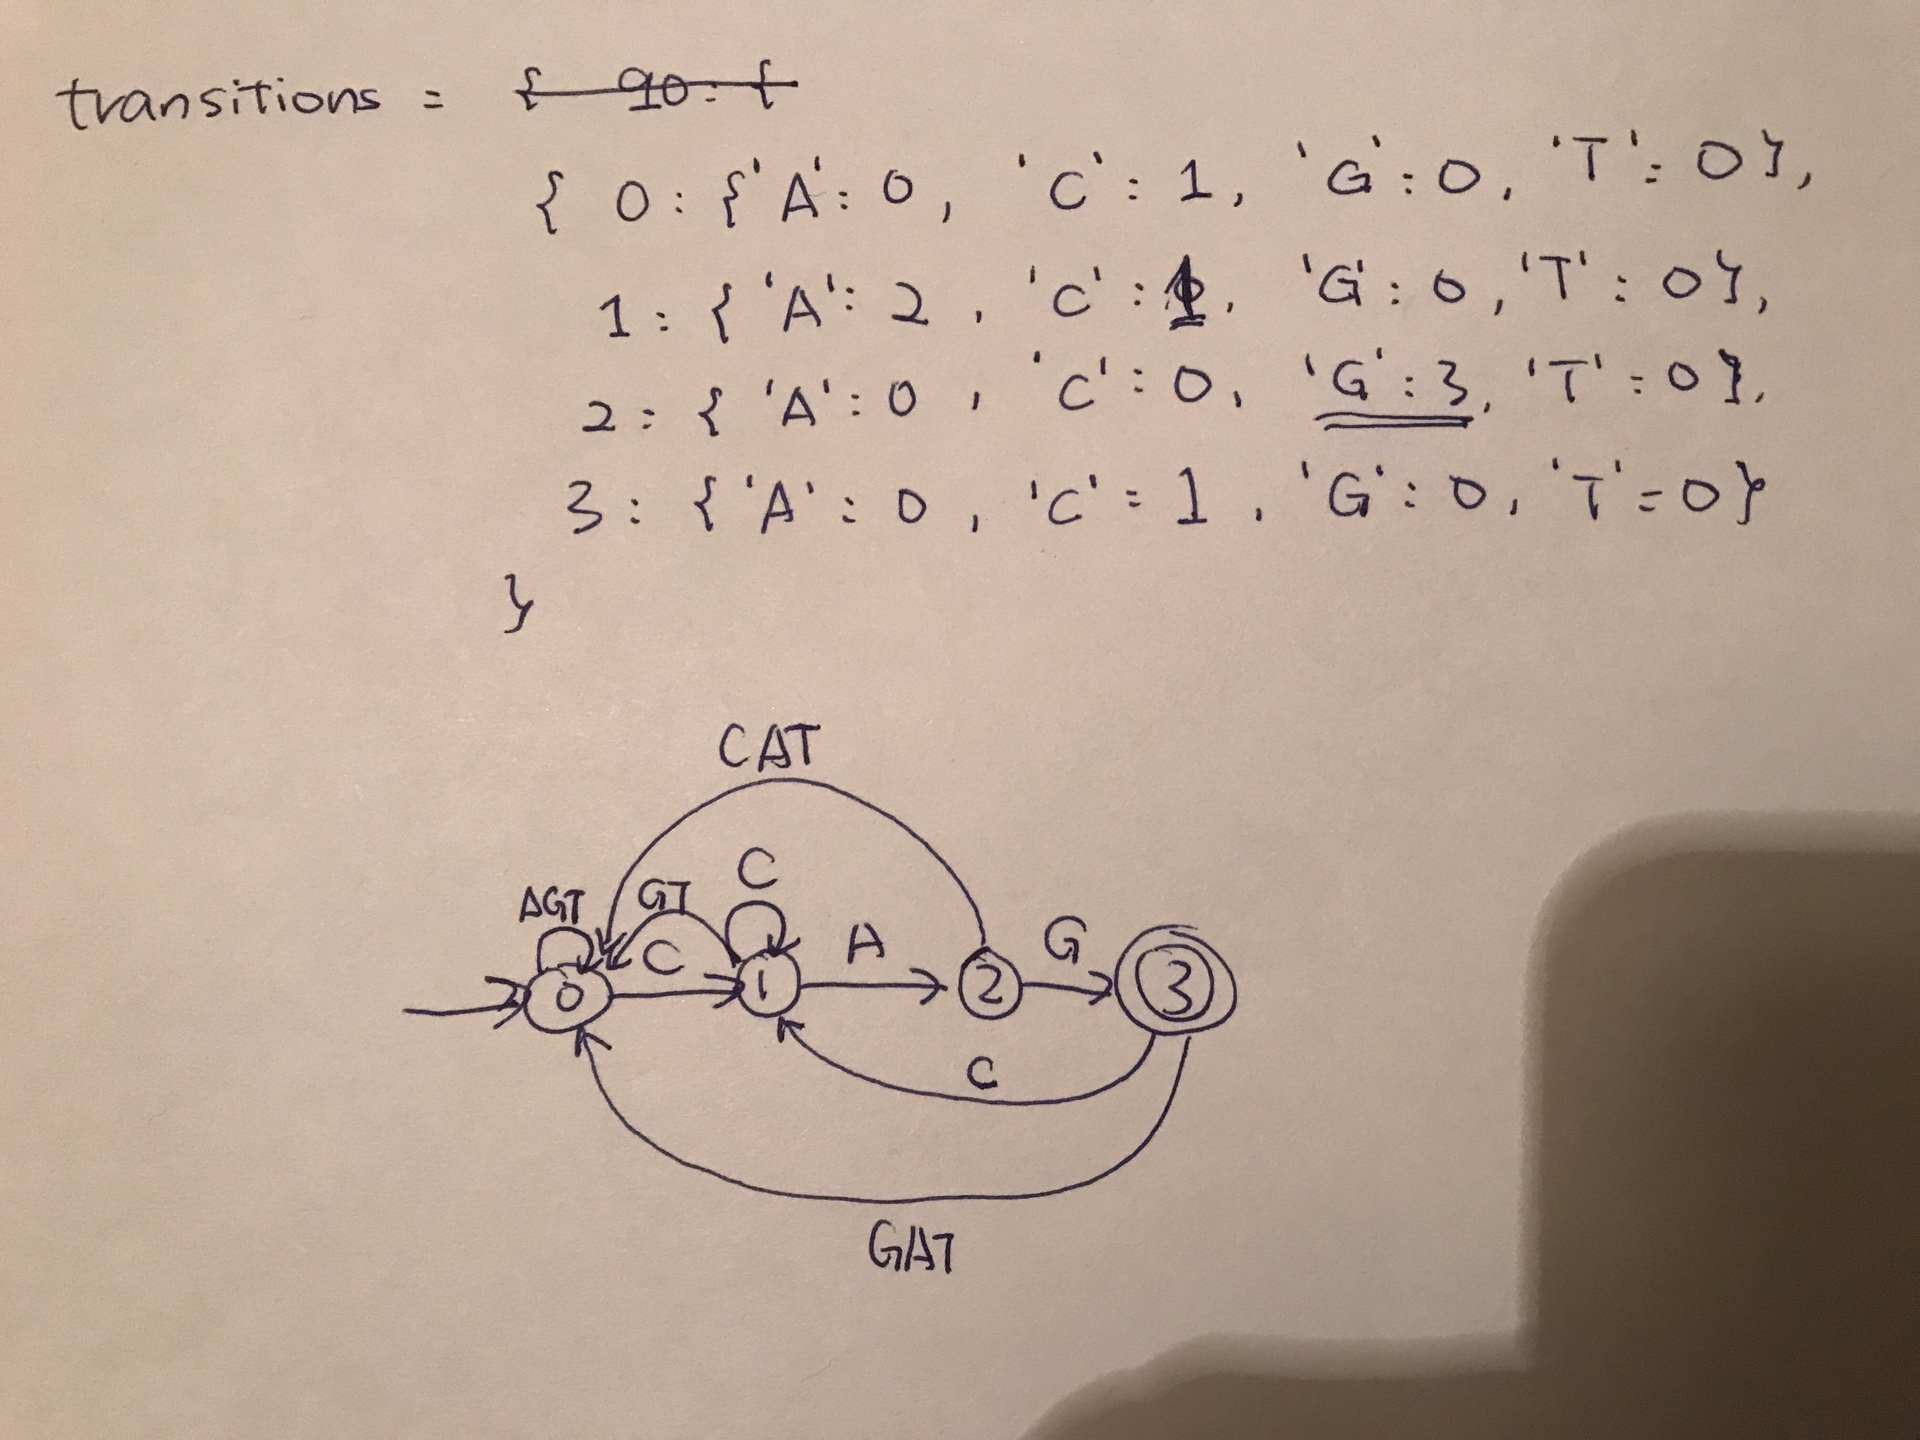 transitions = { q0: {
{ 0: {'A': 0, 'C': 1, 'G': 0, 'T': 0},
1: { 'A': 2, 'C': 1, 'G': 0, 'T': 0},
2: { 'A': 0, 'C': 0, 'G': 3, 'T': 0},
3: { 'A': 0, 'C': 1, 'G': 0, 'T': 0}
}
CAT
C
AGT GT
C A G
0 1 2 3
C
GAT